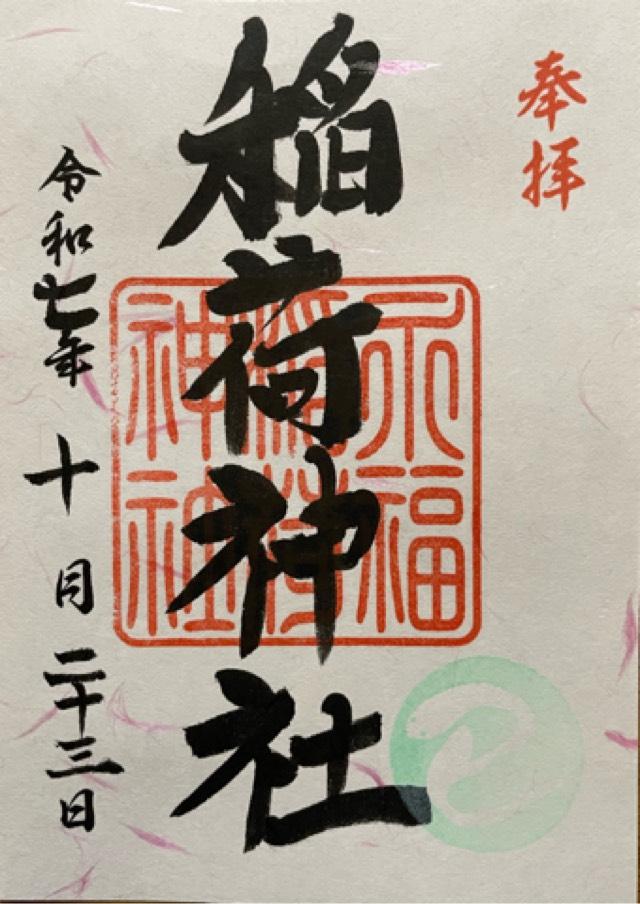 奉拝
稲荷神社
永福
稲荷
神社
令和七年十月二十三日